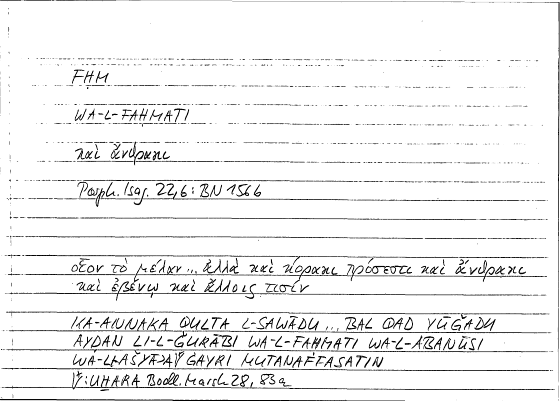 FḤM
WA-L-FAḤMATI
καὶ ἄνθρακι
Porph. Isag. 22,6: BN 1566
οἷον τὸ μέλαν... ἀλλὰ καὶ κόρακι πρόσεστι καὶ ἄνθρακι
καὶ ἐβένῳ καὶ ἄλλοις τισίν
KA-ANNAKA QULTA L-SAWĀDU ... BAL QAD YŪǦADU
AYḌAN LI-L-ĠURĀBI WA-L-FAḤMATI WA-L-ABANŪSI
ĠAYRI MUTANAFFASATIN
UḪARA Bodl. Marsh 28, 83a